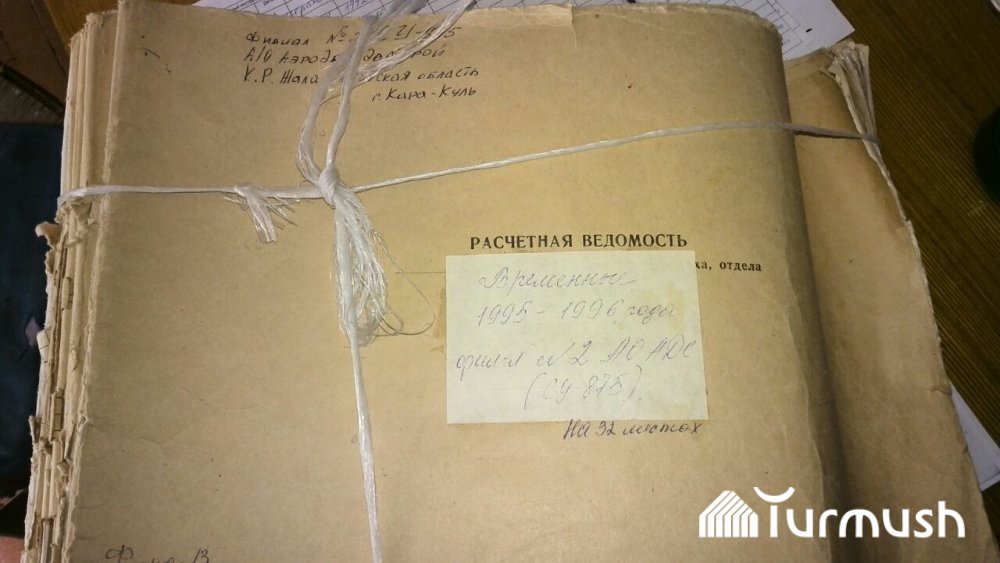 Филиал №
А/О Аэродромдорстрой
К.Р. Жалал-Абадская область
г. Кара-Куль
РАСЧЕТНАЯ ВЕДОМОСТЬ
ха, отдела
Временные
1995 - 1996 годы
фил-л N2 АО АДС
(СУ-875)
На 32 листах
Turmush